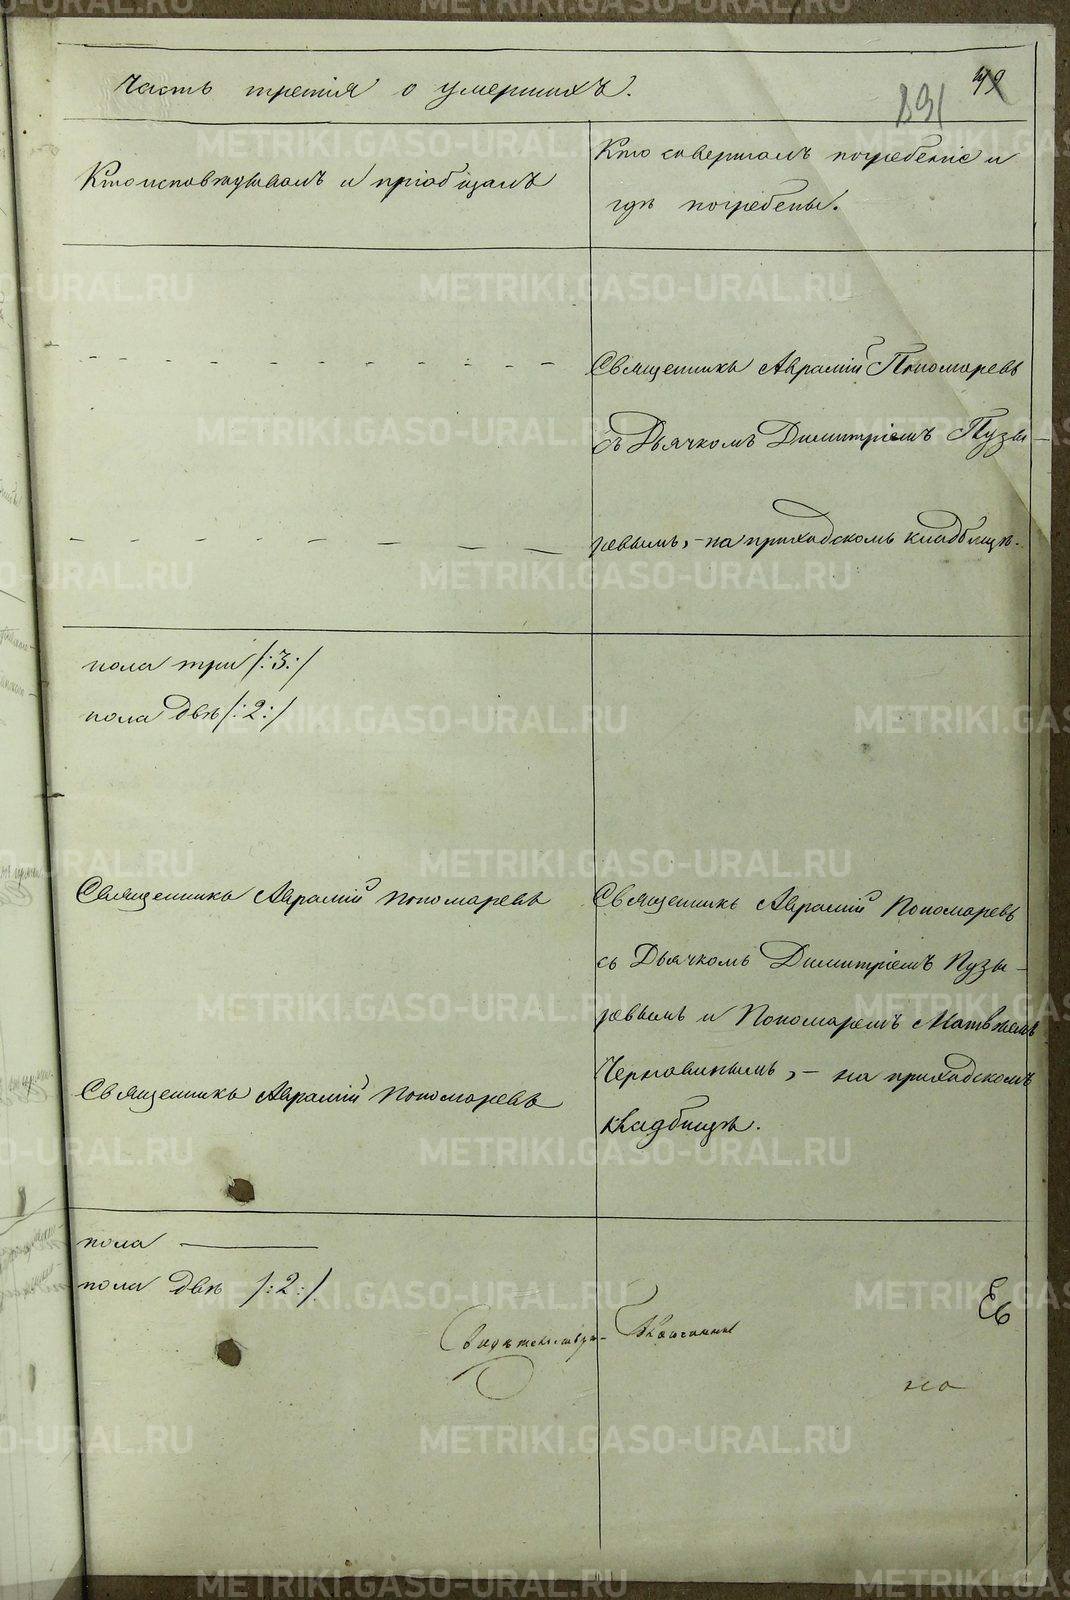 Часть третія о умершихъ.
49
891
Кто исповѣдывалъ и пріобщалъ
Кто совершалъ погребеніе и
гдѣ погребены.
Священникъ Аврамій Пономаревъ
съ Дьячкомъ Димитріемъ Пузы-
ревымъ, - на приходскомъ кладбищѣ.
пола три /:3:/
пола двѣ /:2:/
Священникъ Аврамій Пономаревъ
Священникъ Аврамій Пономаревъ
Священникъ Аврамій Пономаревъ
съ Дьячкомъ Димитріемъ Пузы-
ревымъ и Пономаремъ Матвѣемъ
Чернавинымъ, - на приходскомъ
кладбищѣ.
пола
пола двѣ /:2:/
METRIKI.GASO-URAL.RU